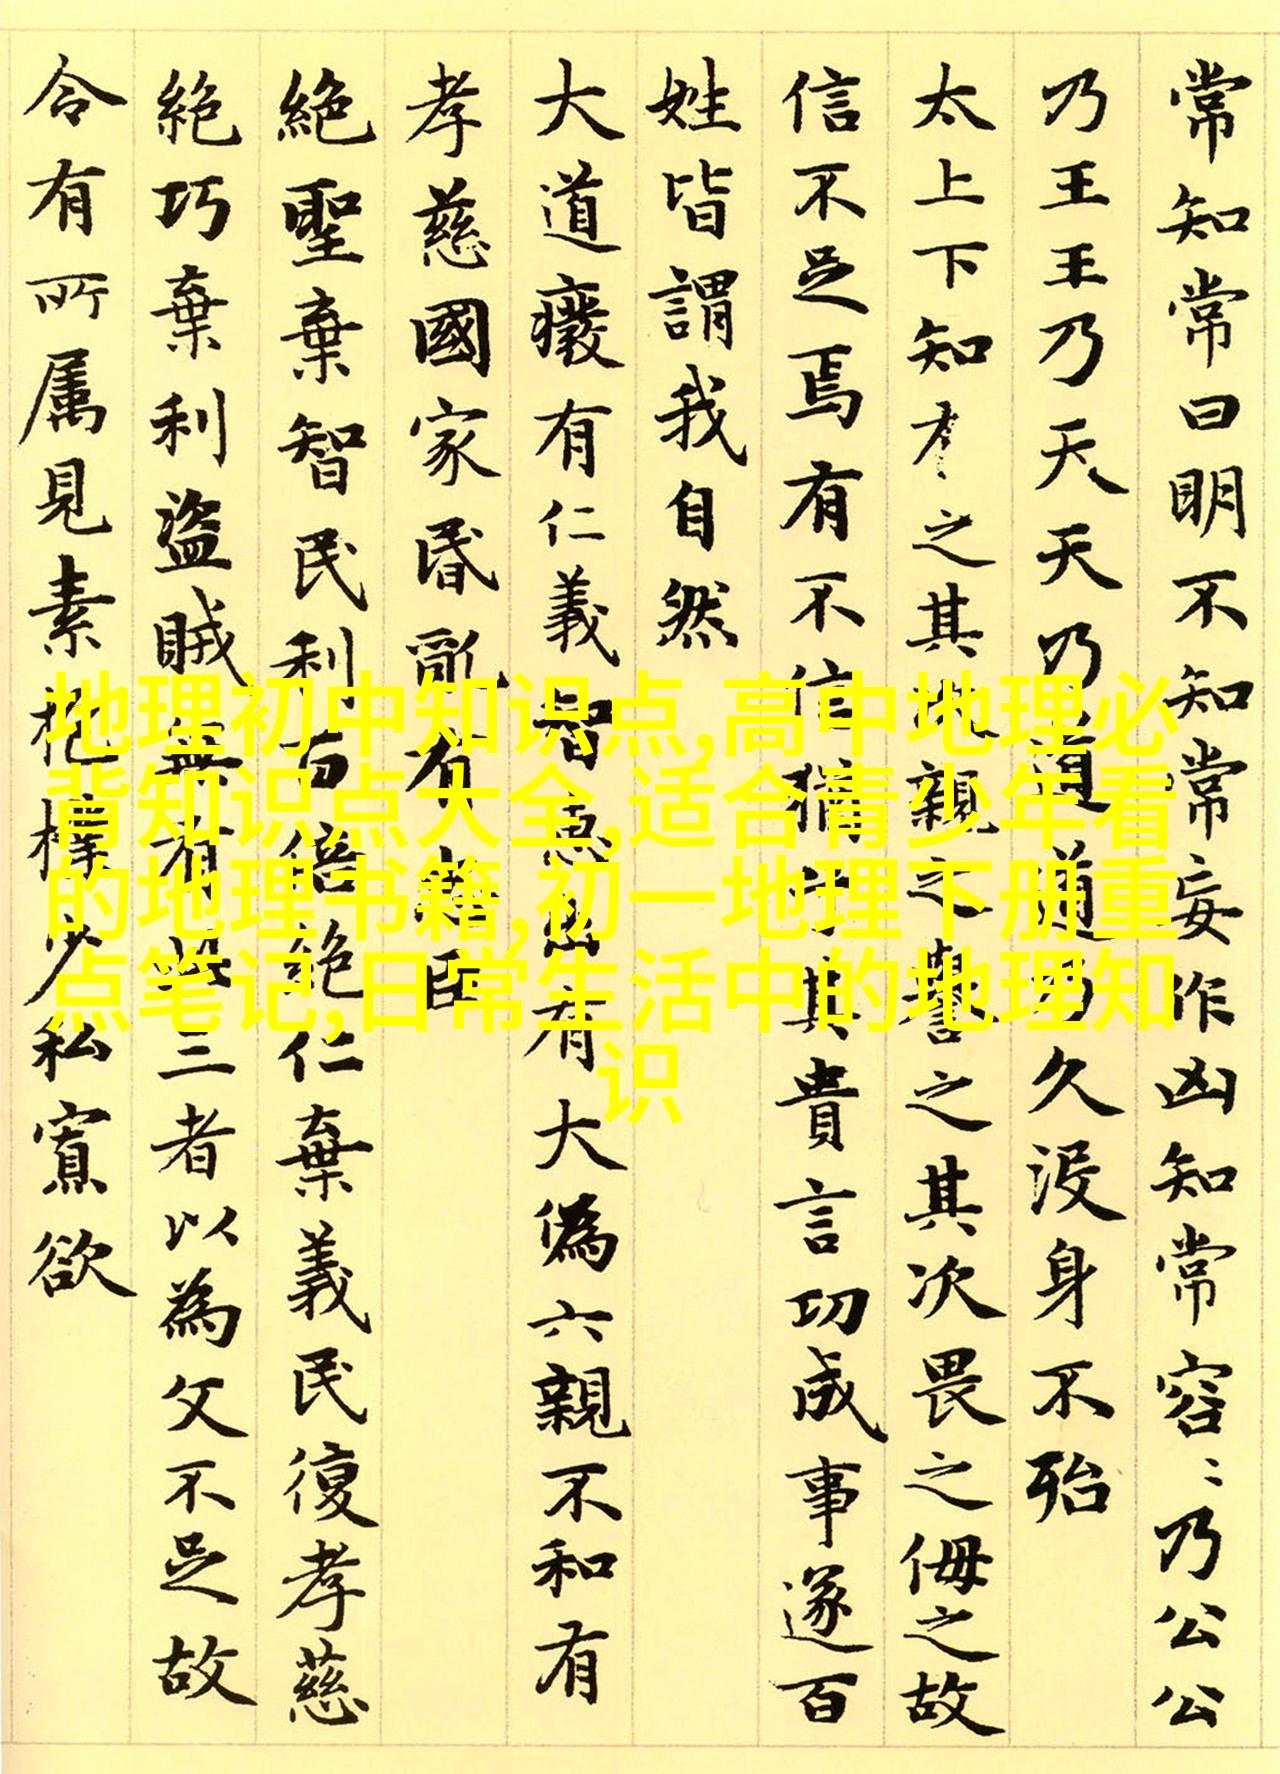 常知常曰明不知常妄作凶知常容〻乃公公
乃王王乃天天乃道道乃久没身不殆
太上下知有之其次親之譽之其次畏之侮之故
信不足焉有不信猶其貴言功成事遂百
姓皆謂我自然
大道癈有仁義智惠出有大偽六親不和有
孝慈國家昏亂有忠臣
絶聖棄智民利百倍絶仁棄義民復孝慈
絶巧棄利盗賊無有此三者以為文不足故
令有所属見素抱樸少私寡欲
地理初中知识点,高中地理必
背知识点大全,适合青少年看
的地理书籍,初一地理下册重
点笔记,日常生活中的地理知
识